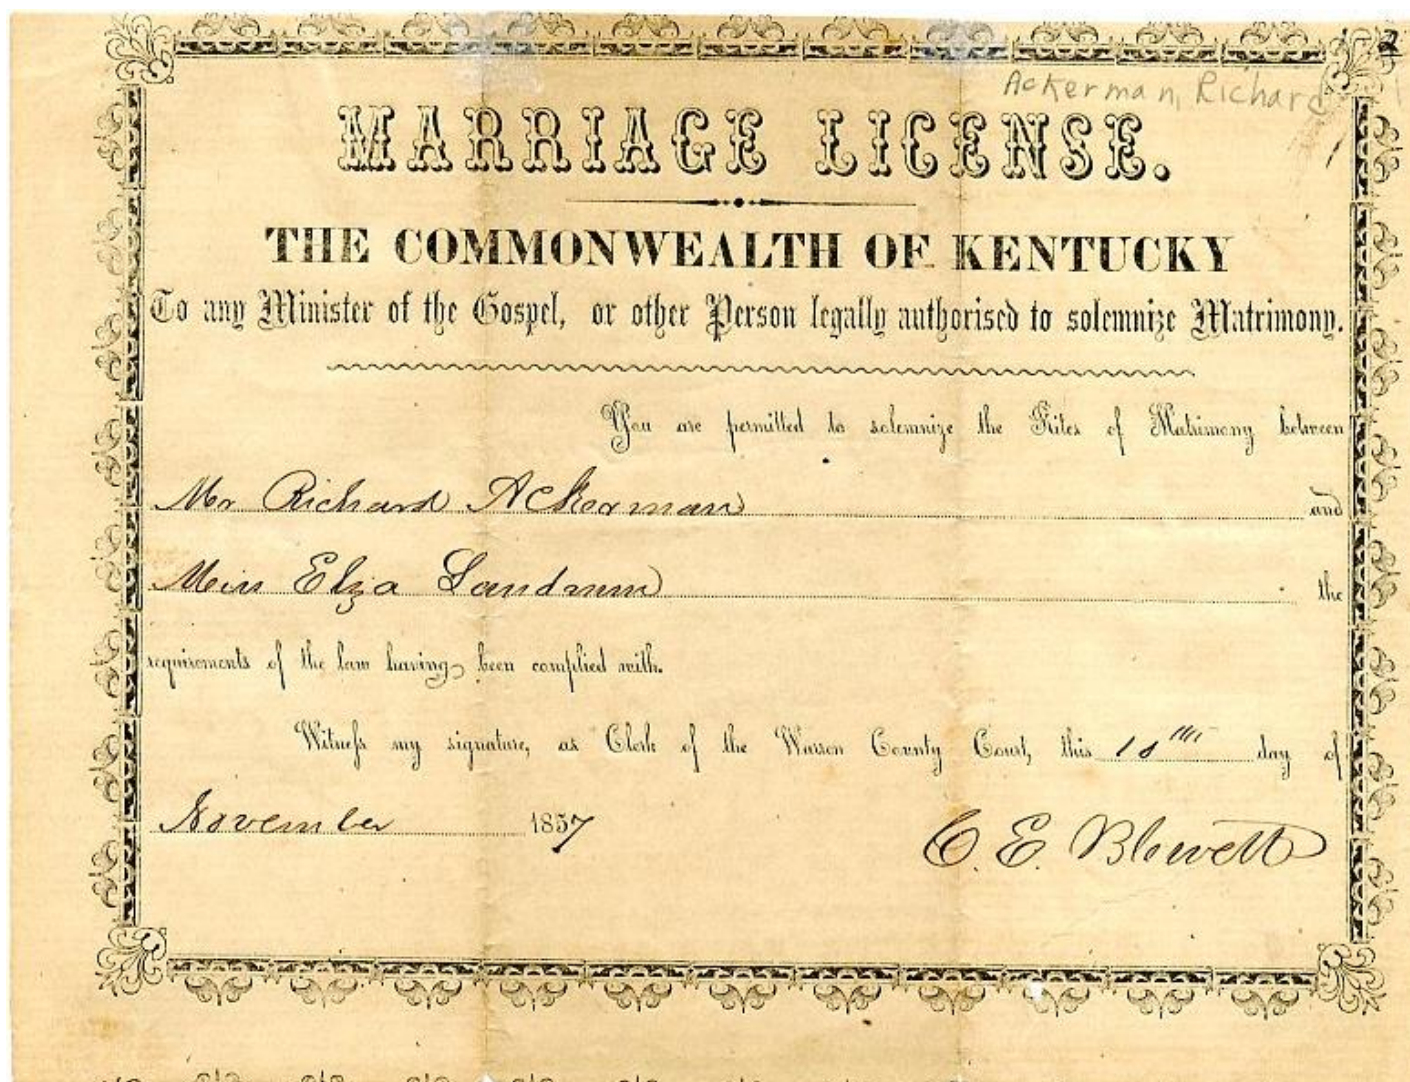 Ackerman, Richard
MARRIAGE LICENSE.
THE COMMONWEALTH OF KENTUCKY
To any Minister of the Gospel, or other Person legally authorised to solemnize Matrimony.
You are permitted to solemnize the Rites of Matrimony between
Mr Richard Ackerman and
Miss Elza Landrum the
requirements of the law having been complied with.
Witness my signature, as Clerk of the Warren County Court, this day of
November 1857
C. E. Blewett